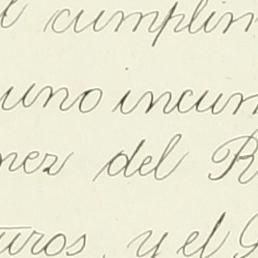 cumplin
uno incum
nez del R
uros, y el